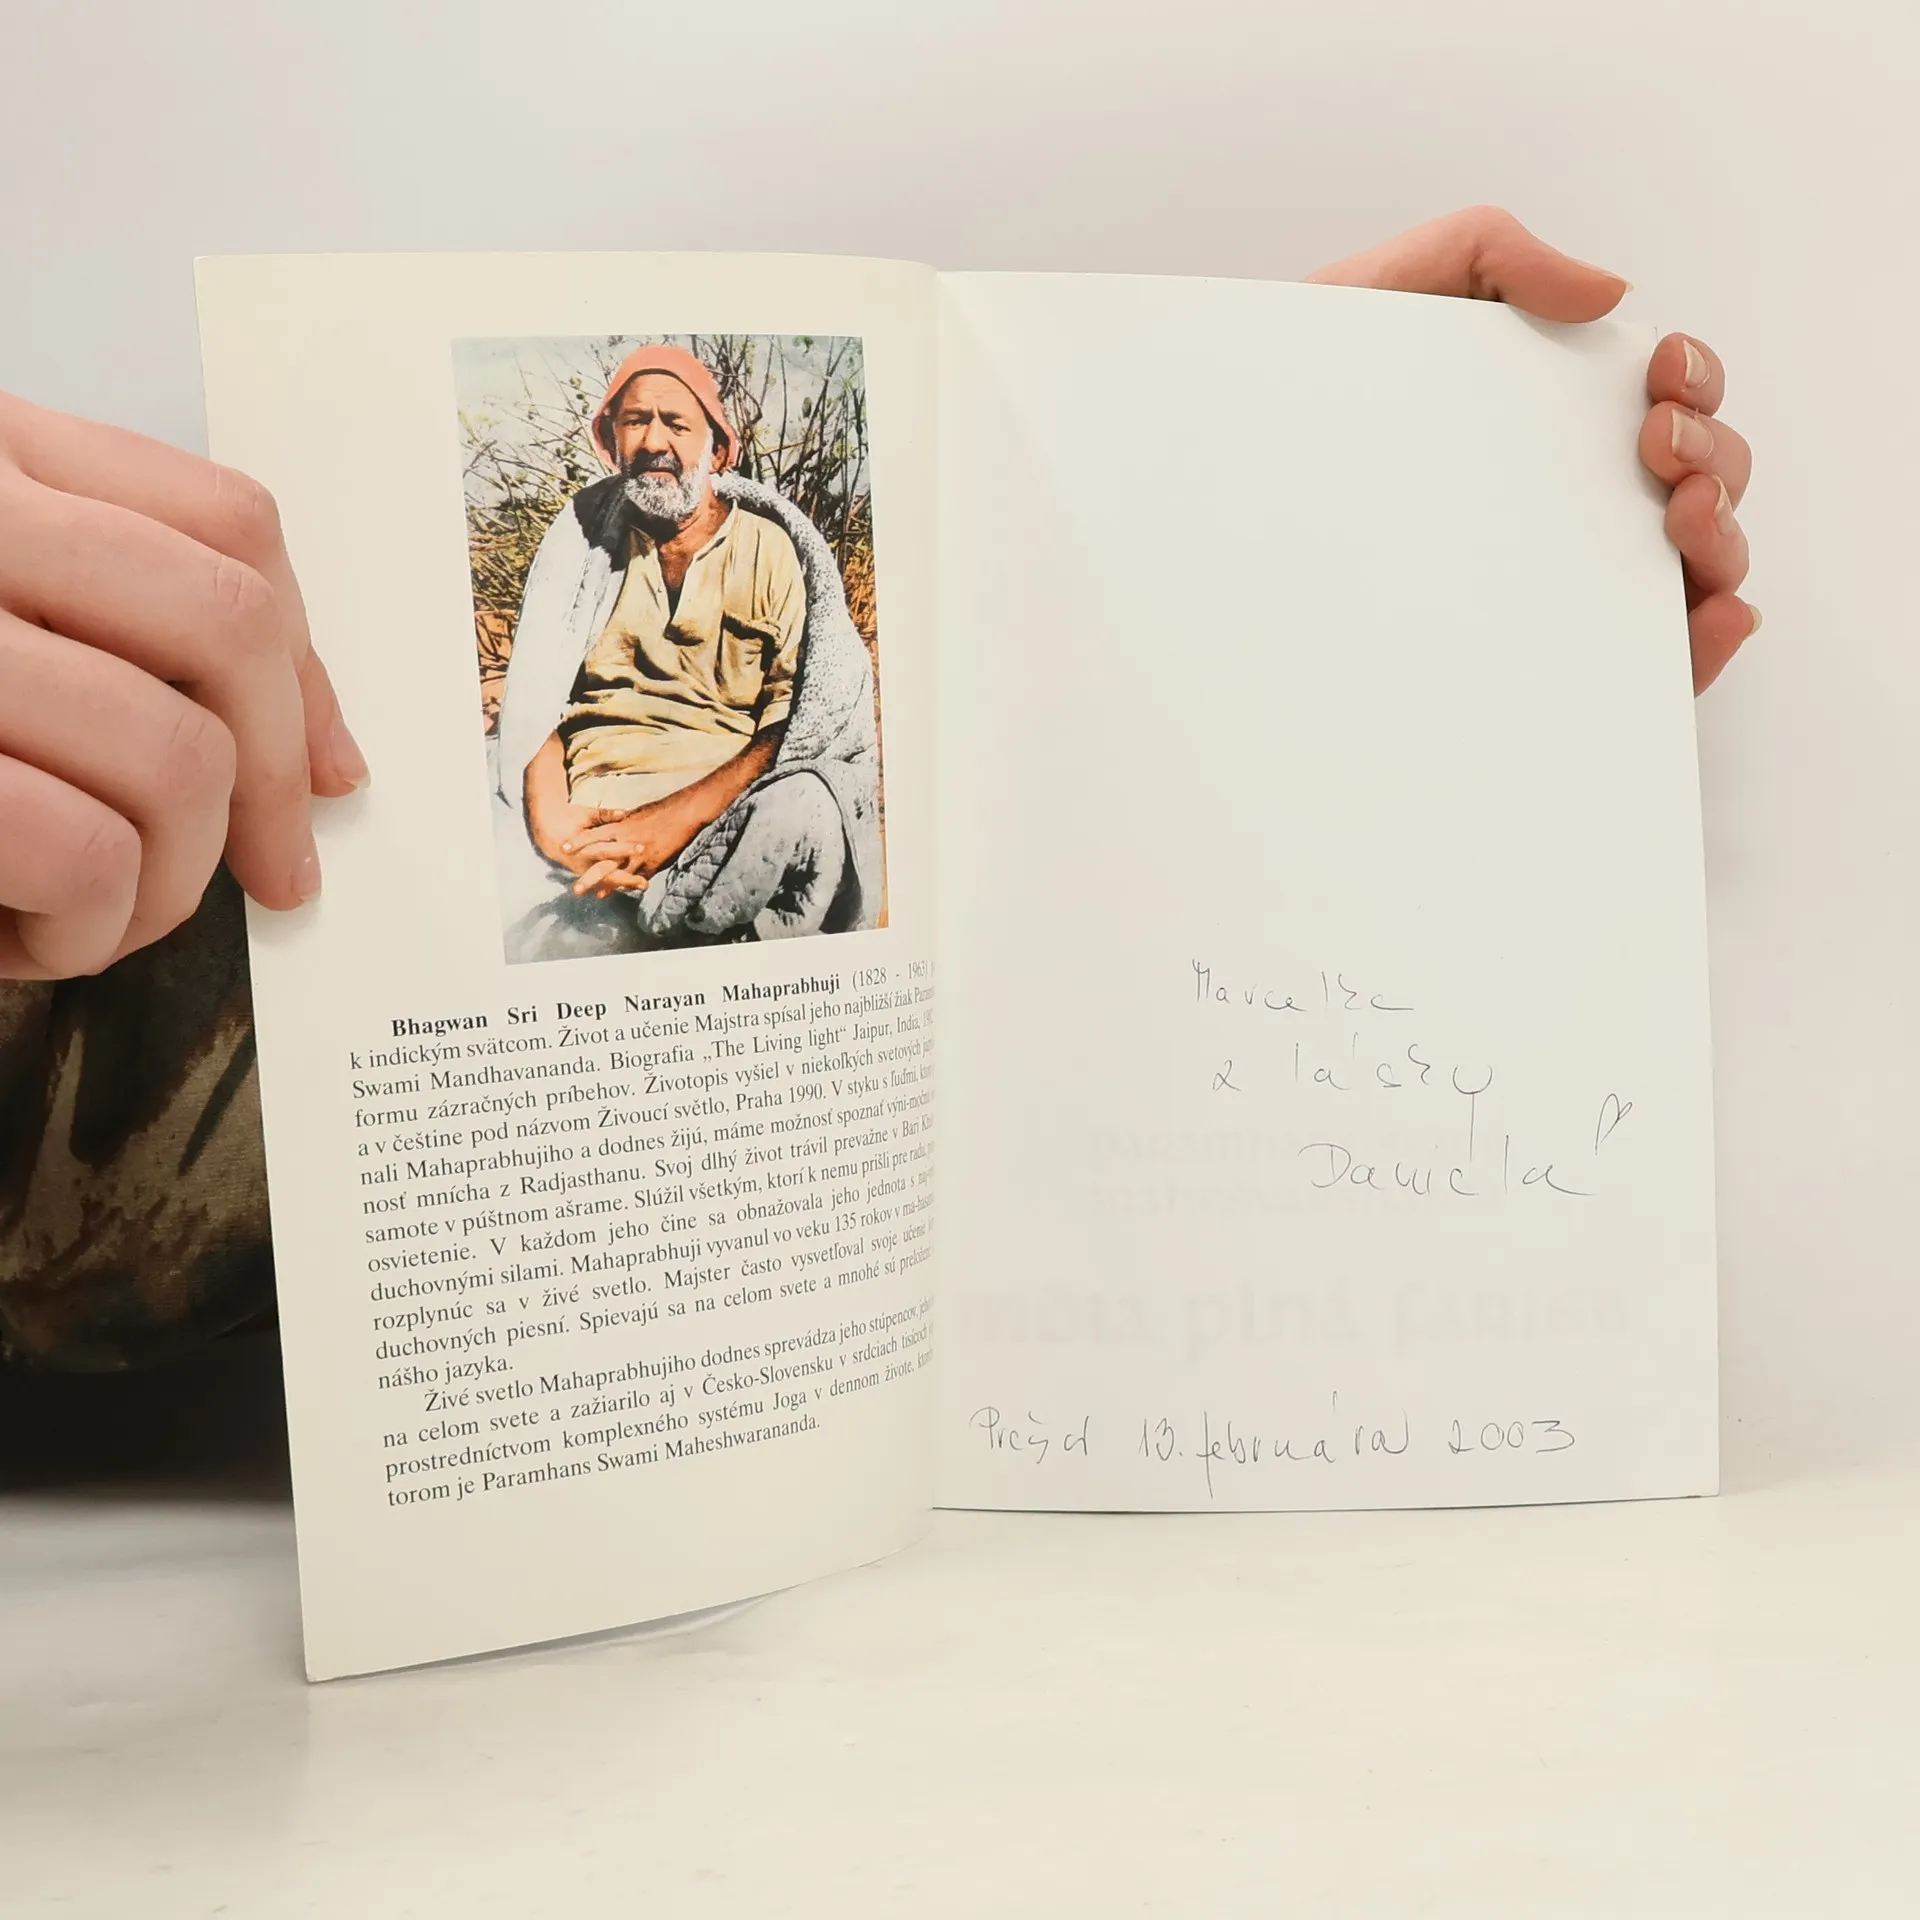 Bhagwan Sri Deep Narayan Mahaprabhuji (1828 - 1963)
k indickým svätcom. Život a učenie Majstra spísal jeho najbližší žiak
Swami Mandhavananda. Biografia „The Living light“ Jaipur, India,
formu zázračných príbehov. Životopis vyšiel v niekoľkých svetových
a v češtine pod názvom Živoucí světlo, Praha 1990. V styku s ľuďmi,
nali Mahaprabhujiho a dodnes žijú, máme možnosť spoznať výni-močnú
nosť mnícha z Radjasthanu. Svoj dlhý život trávil prevažne v Bari
samote v púštnom ašrame. Slúžil všetkým, ktorí k nemu prišli pre radu,
osvietenie. V každom jeho čine sa obnažovala jeho jednota s
duchovnými silami. Mahaprabhuji vyvanul vo veku 135 rokov v
rozplynúc sa v živé svetlo. Majster často vysvetľoval svoje učenie
duchovných piesní. Spievajú sa na celom svete a mnohé sú preložené
nášho jazyka.
Živé svetlo Mahaprabhujiho dodnes sprevádza jeho stúpencov,
na celom svete a zažiarilo aj v Česko-Slovensku v srdciach tisícoch
prostredníctvom komplexného systému Joga v dennom živote,
torom je Paramhans Swami Maheshwarananda.
Marcelke
z lásky
Daniela
13. februára 2003